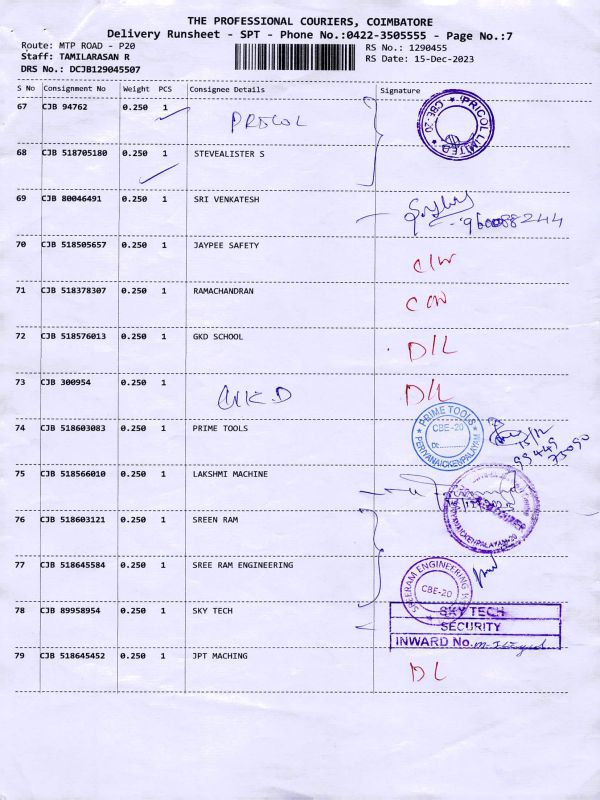 THE PROFESSIONAL COURIERS, COIMBATORE
Delivery Runsheet - SPT - Phone No.:0422-3505555 - Page No.:7
Route: MTP ROAD - P20
RS No.: 1290455
Staff: TAMILARASAN R
RS Date: 15-Dec-2023
DRS No.: DCJB129045507
S No Consignment No Weight PCS Consignee Details Signature
67 CJB 94762 0.250 1
PRICOL
PRICOL LIMITED * CBE-20 *
68 CJB 518705180 0.250 1 STEVEALISTER S
69 CJB 80046491 0.250 1 SRI VENKATESH
70 CJB 518505657 0.250 1 JAYPEE SAFETY
71 CJB 518378307 0.250 1 RAMACHANDRAN
72 CJB 518576013 0.250 1 GKD SCHOOL D/L
73 CJB 300954 0.250 1 D/L
74 CJB 518603083 0.250 1 PRIME TOOLS
* PRIME TOOLS * PERIYANAICKENPALAYAM
CBE-20
15/12
99449
75090
75 CJB 518566010 0.250 1 LAKSHMI MACHINE
76 CJB 518603121 0.250 1 SREEN RAM
77 CJB 518645584 0.250 1 SREE RAM ENGINEERING
SREERAM ENGINEERING
CBE-20
78 CJB 89958954 0.250 1 SKY TECH
SKY TECH
SECURITY
INWARD No.
79 CJB 518645452 0.250 1 JPT MACHING DL